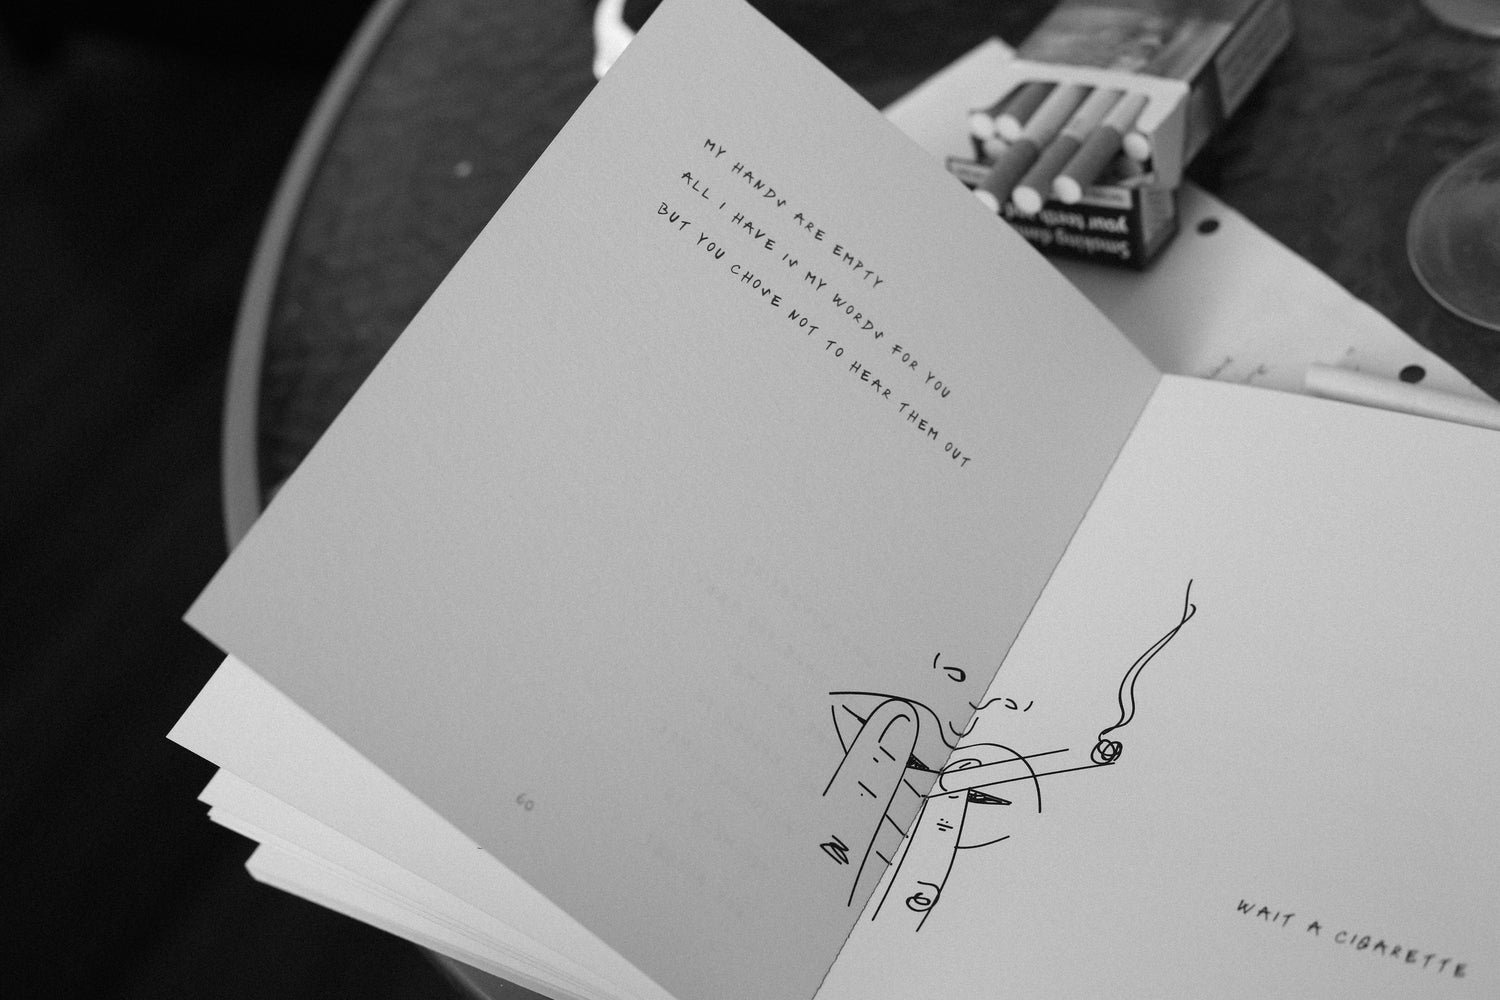 MY HANDS ARE EMPTY
ALL I HAVE IS MY WORDS FOR YOU
BUT YOU CHOSE NOT TO HEAR THEM OUT
60
WAIT A CIGARETTE
Smoking
your teeth